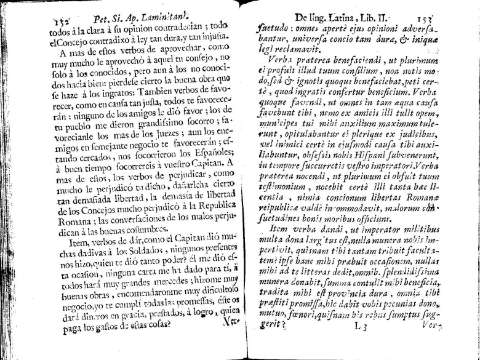 152 Pet. Si. Ap. Laminitani.
todos à la clara à su opinion contradecian; todo
el Concejo contradixò à ley tan dura, y tan injusta.
A mas de estos verbos de aprovechar, como
muy mucho le aprovechò à aquel tu consejo, no
solo à los conocidos, pero aun à los no conoci-
dos hacia bien: pierdese cierto la buena obra que
se haze à los ingratos: Tambien verbos de favo-
recer, como en causa tan justa, todos te favorece-
ràn: ninguno de los amigos le diò favor; los de
tu pueblo me dieron grandissimo socorro; fa-
vorecianle los mas de los Juezes; aun los ene-
migos en semejante negocio te favoreceràn; es-
tando cercados, nos socorrieron los Españoles;
à buen tiempo socorrereis à vuestro Capitan. A
mas de estos, los verbos de perjudicar, como
mucho le perjudicò tu dicho, dañarleha cierto
tan demasiada libertad, la demasia de libertad
de los Consejos mucho perjudicò à la Republica
Romana; las conversaciones de los malos perju-
dican à las buenas costumbres.
Item, verbos de dàr, como el Capitan diò mu-
chas dadivas à los Soldados, ningunos presentes
nos hizo, quien te diò tanto poder? èl me diò es-
ta ocasion, ninguna carta me ha dado para ti, à
todos harà muy grandes mercedes; hizome muy
buenas obras, encomendaronme muy dificultoso
negocio, yo te cumplì todas las promessas, este os
darà dineros en gracia, prestados, à logro, quien
paga los gastos de estas cosas? Ver-
De ling. Latina, Lib. II. 153
suetudo: omnes apertè ejus opinioni adversa-
bantur, universa concio tam duræ, & iniquæ
legi reclamavit.
Verba præterea benefaciendi, ut plurimum
ei profuit illud tuum consilium, non notis mo-
do, sed & ignotis quoque benefaciebat, perit cer-
tè, quod ingratis confertur beneficium. Verba
quoque favendi, ut omnes in tam æqua causa
favebunt tibi, nemo ex amicis illi tulit opem,
municipes tui mihi auxilium maximum tule-
runt, opitulabantur ei plerique ex judicibus,
vel inimici certè in ejusmodi causa tibi auxi-
liabuntur, obsessis nobis Hispani subvenerunt,
in tempore succurretis vestro imperatori. Verba
præterea nocendi, ut plurimum ei obfuit tuum
testimonium, nocebit certè illi tanta hæc li-
centia, nimia contionum libertas Romanæ
reipublicæ valdè incommodavit, malorum con-
suetudines bonis moribus officiunt.
Item verba dandi, ut imperator militibus
multa dona largitus est, nulla munera nobis im-
pertivit, quisnam tibi tantam tribuit faculta-
tem? ipse hanc mihi præbuit occasionem, nullas
mihi ad te litteras dedit, omnib. splendidissima
munera donabit, summa contulit mihi beneficia,
tradita mihi est provincia dura, omnia tibi
præstiti promissa, hic dabit vobis pecunias dono,
mutuo, fœnori, quisnam his rebus sumptus sug-
gerit? L 3 Ver-